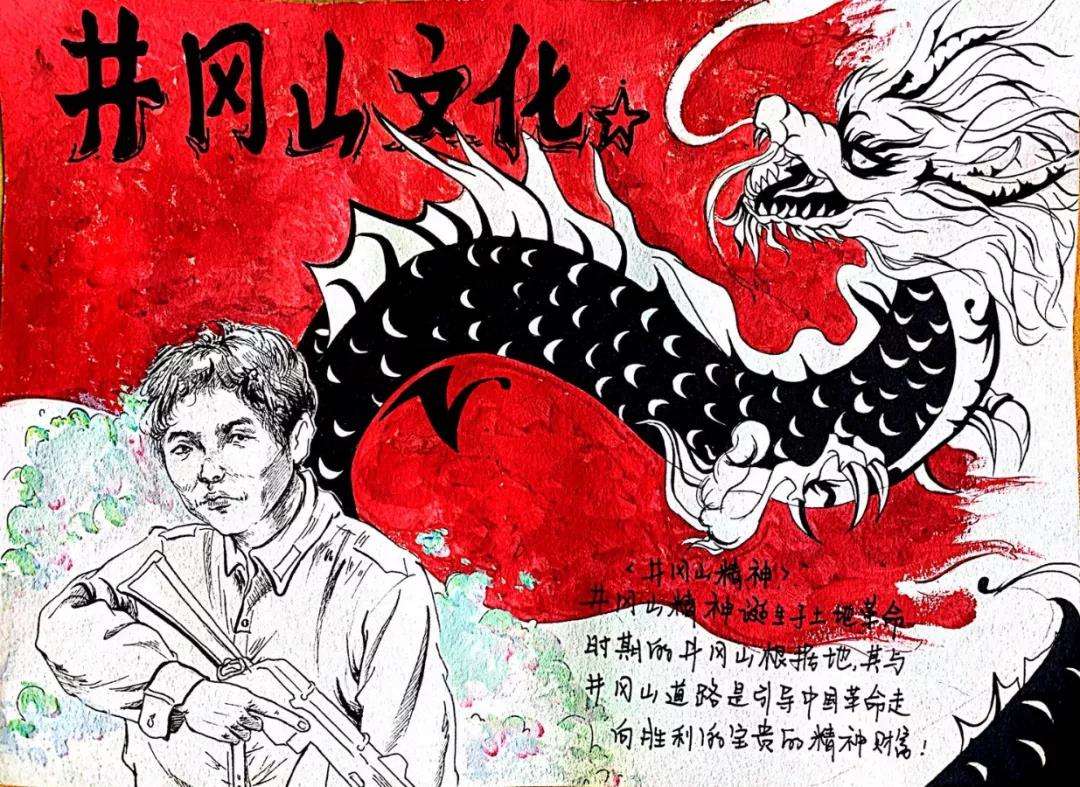 井冈山文化
《井冈山精神》
井冈山精神诞生于土地革命
时期的井冈山根据地,其与
井冈山道路是引导中国革命走
向胜利的宝贵的精神财富!